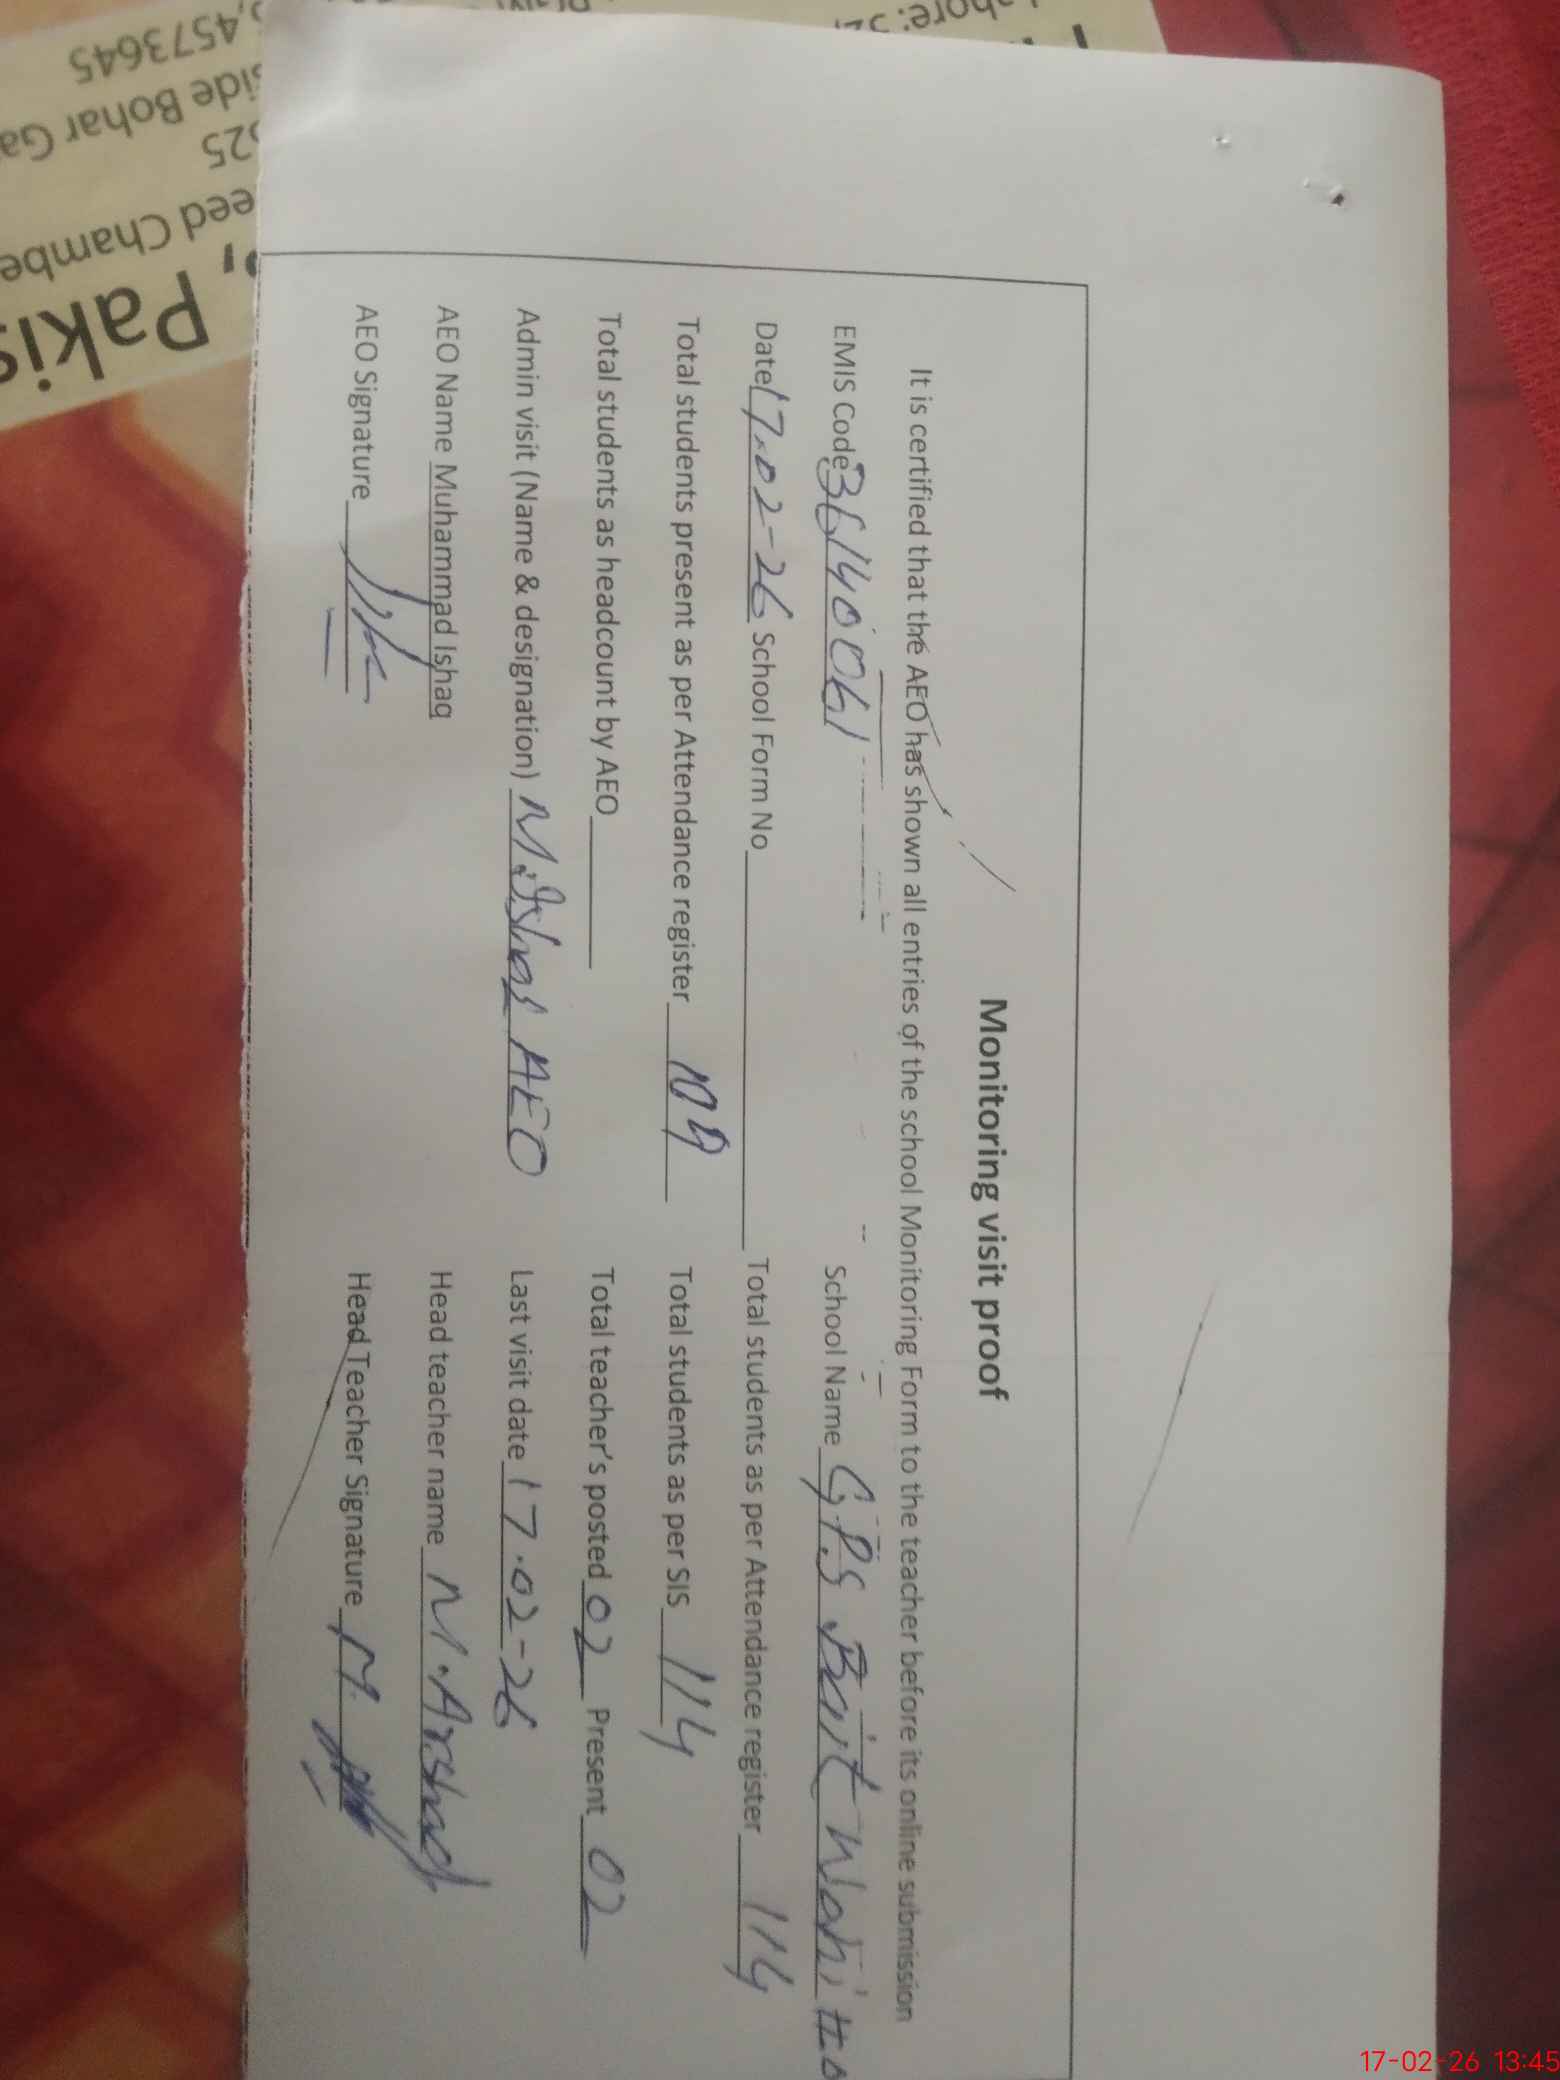 Monitoring visit proof
It is certified that the AEO has shown all entries of the school Monitoring Form to the teacher before its online submission
EMIS Code 36140061 School Name G.P.S Bait Wahi
Date 17.02-26 School Form No Total students as per Attendance register 114
Total students present as per Attendance register 109 Total students as per SIS 114
Total students as headcount by AEO Total teacher's posted 02 Present 02
Admin visit (Name & designation) M.Ishaq AEO Last visit date 17.02-26
AEO Name Muhammad Ishaq Head teacher name M.Arshad
AEO Signature Head Teacher Signature M.
4573645
ide Bohar Ga
25
eed Chambe
Pakis
17-02-26 13:45